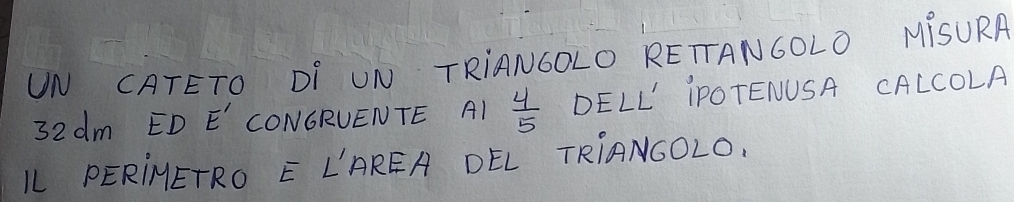 UN CATETO DI UN TRIANGOLO RETTANGOLO MISURA
32dm ED E' CONGRUENTE AI 4/5 DELL' IPOTENUSA CALCOLA
IL PERIMETRO E L'AREA DEL TRIANGOLO.